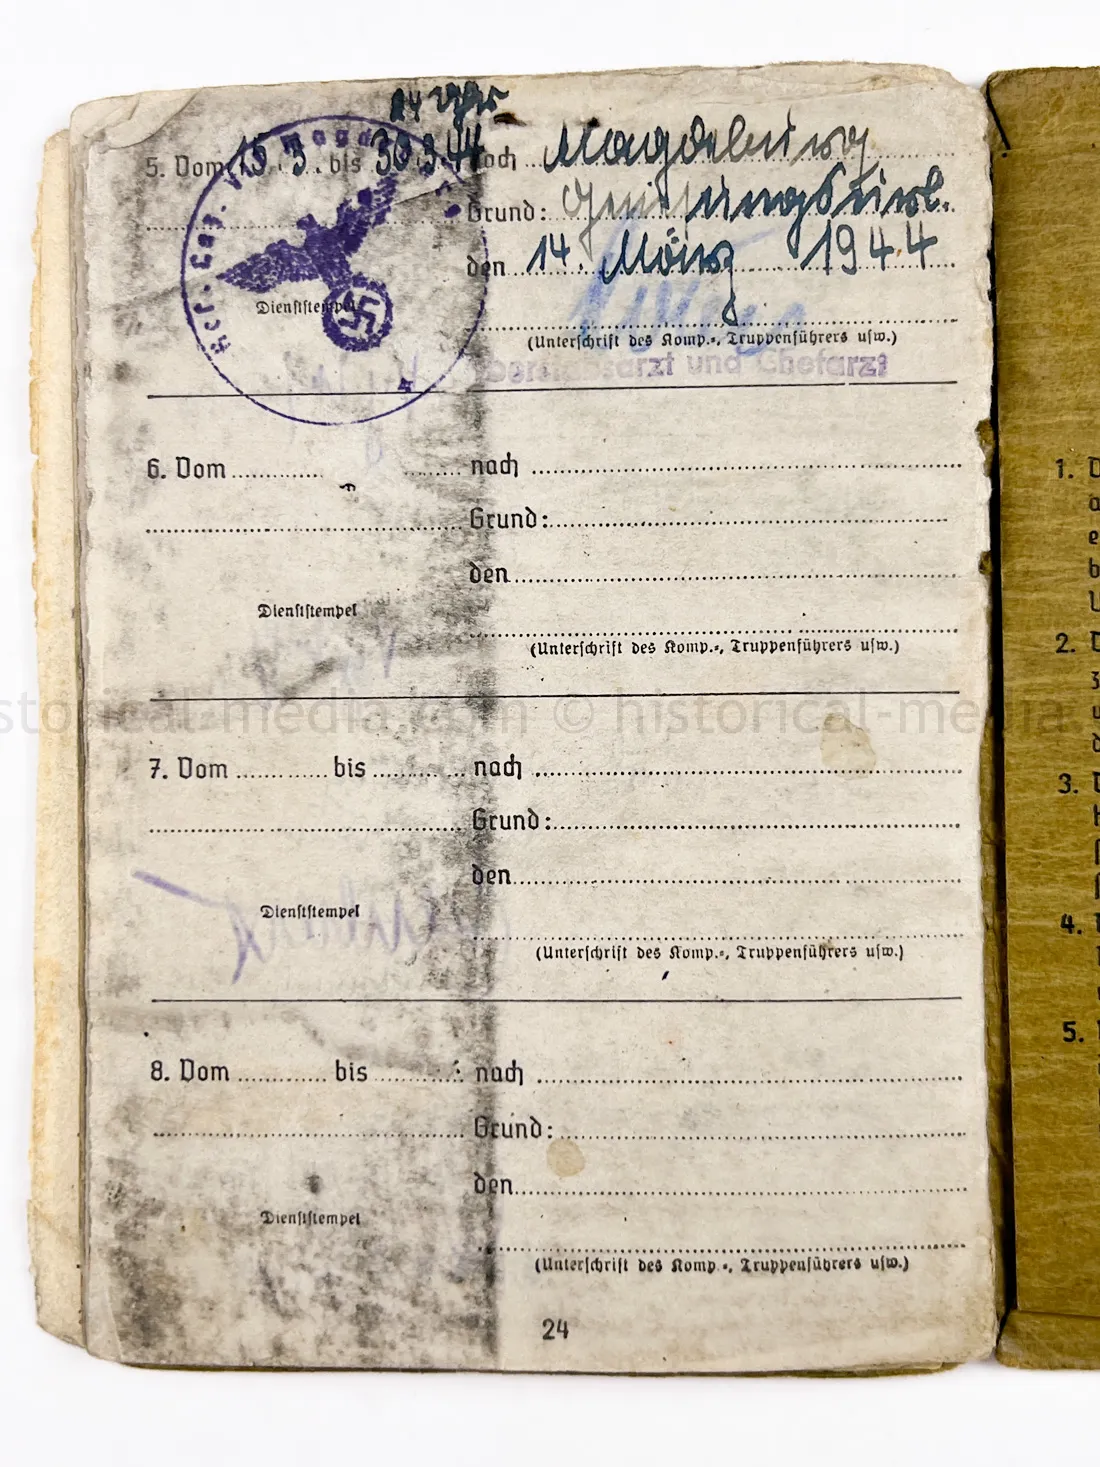 24 Uhr
5. Vom 15. 3. bis 30.3.44 nach Magdeburg
Grund: Genesungsurl.
den 14. März 1944
Dienststempel
(Unterschrift des Komp.-, Truppenführers usw.)
Oberstabsarzt und Chefarzt
6. Vom nach
Grund:
den
Dienststempel
(Unterschrift des Komp.-, Truppenführers usw.)
historical-media.com © historical-media
7. Vom bis nach
Grund:
den
Dienststempel
(Unterschrift des Komp.-, Truppenführers usw.)
8. Vom bis nach
Grund:
den
Dienststempel
(Unterschrift des Komp.-, Truppenführers usw.)
24
1.
2.
3.
4.
5.